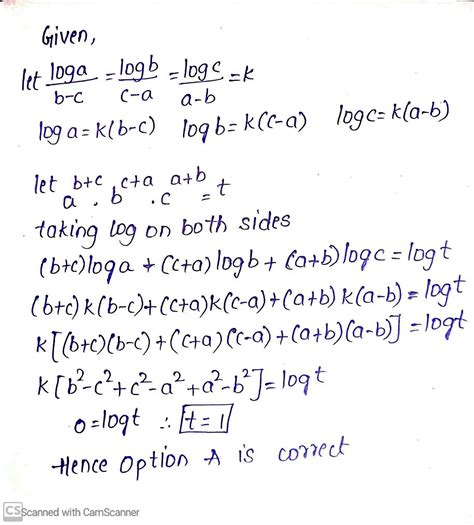 Given,
let loga/b-c = logb/c-a = logc/a-b = k
log a = k(b-c) log b = k(c-a) log c = k(a-b)
let a^b+c . b^c+a . c^a+b = t
taking log on both sides
(b+c)loga + (c+a)logb + (a+b)logc = logt
(b+c)k(b-c)+(c+a)k(c-a)+(a+b)k(a-b) = logt
k[(b+c)(b-c)+(c+a)(c-a)+(a+b)(a-b)] = logt
k[b²-c²+c²-a²+a²-b²] = logt
0=logt ∴ t=1
Hence Option A is correct
CS Scanned with CamScanner